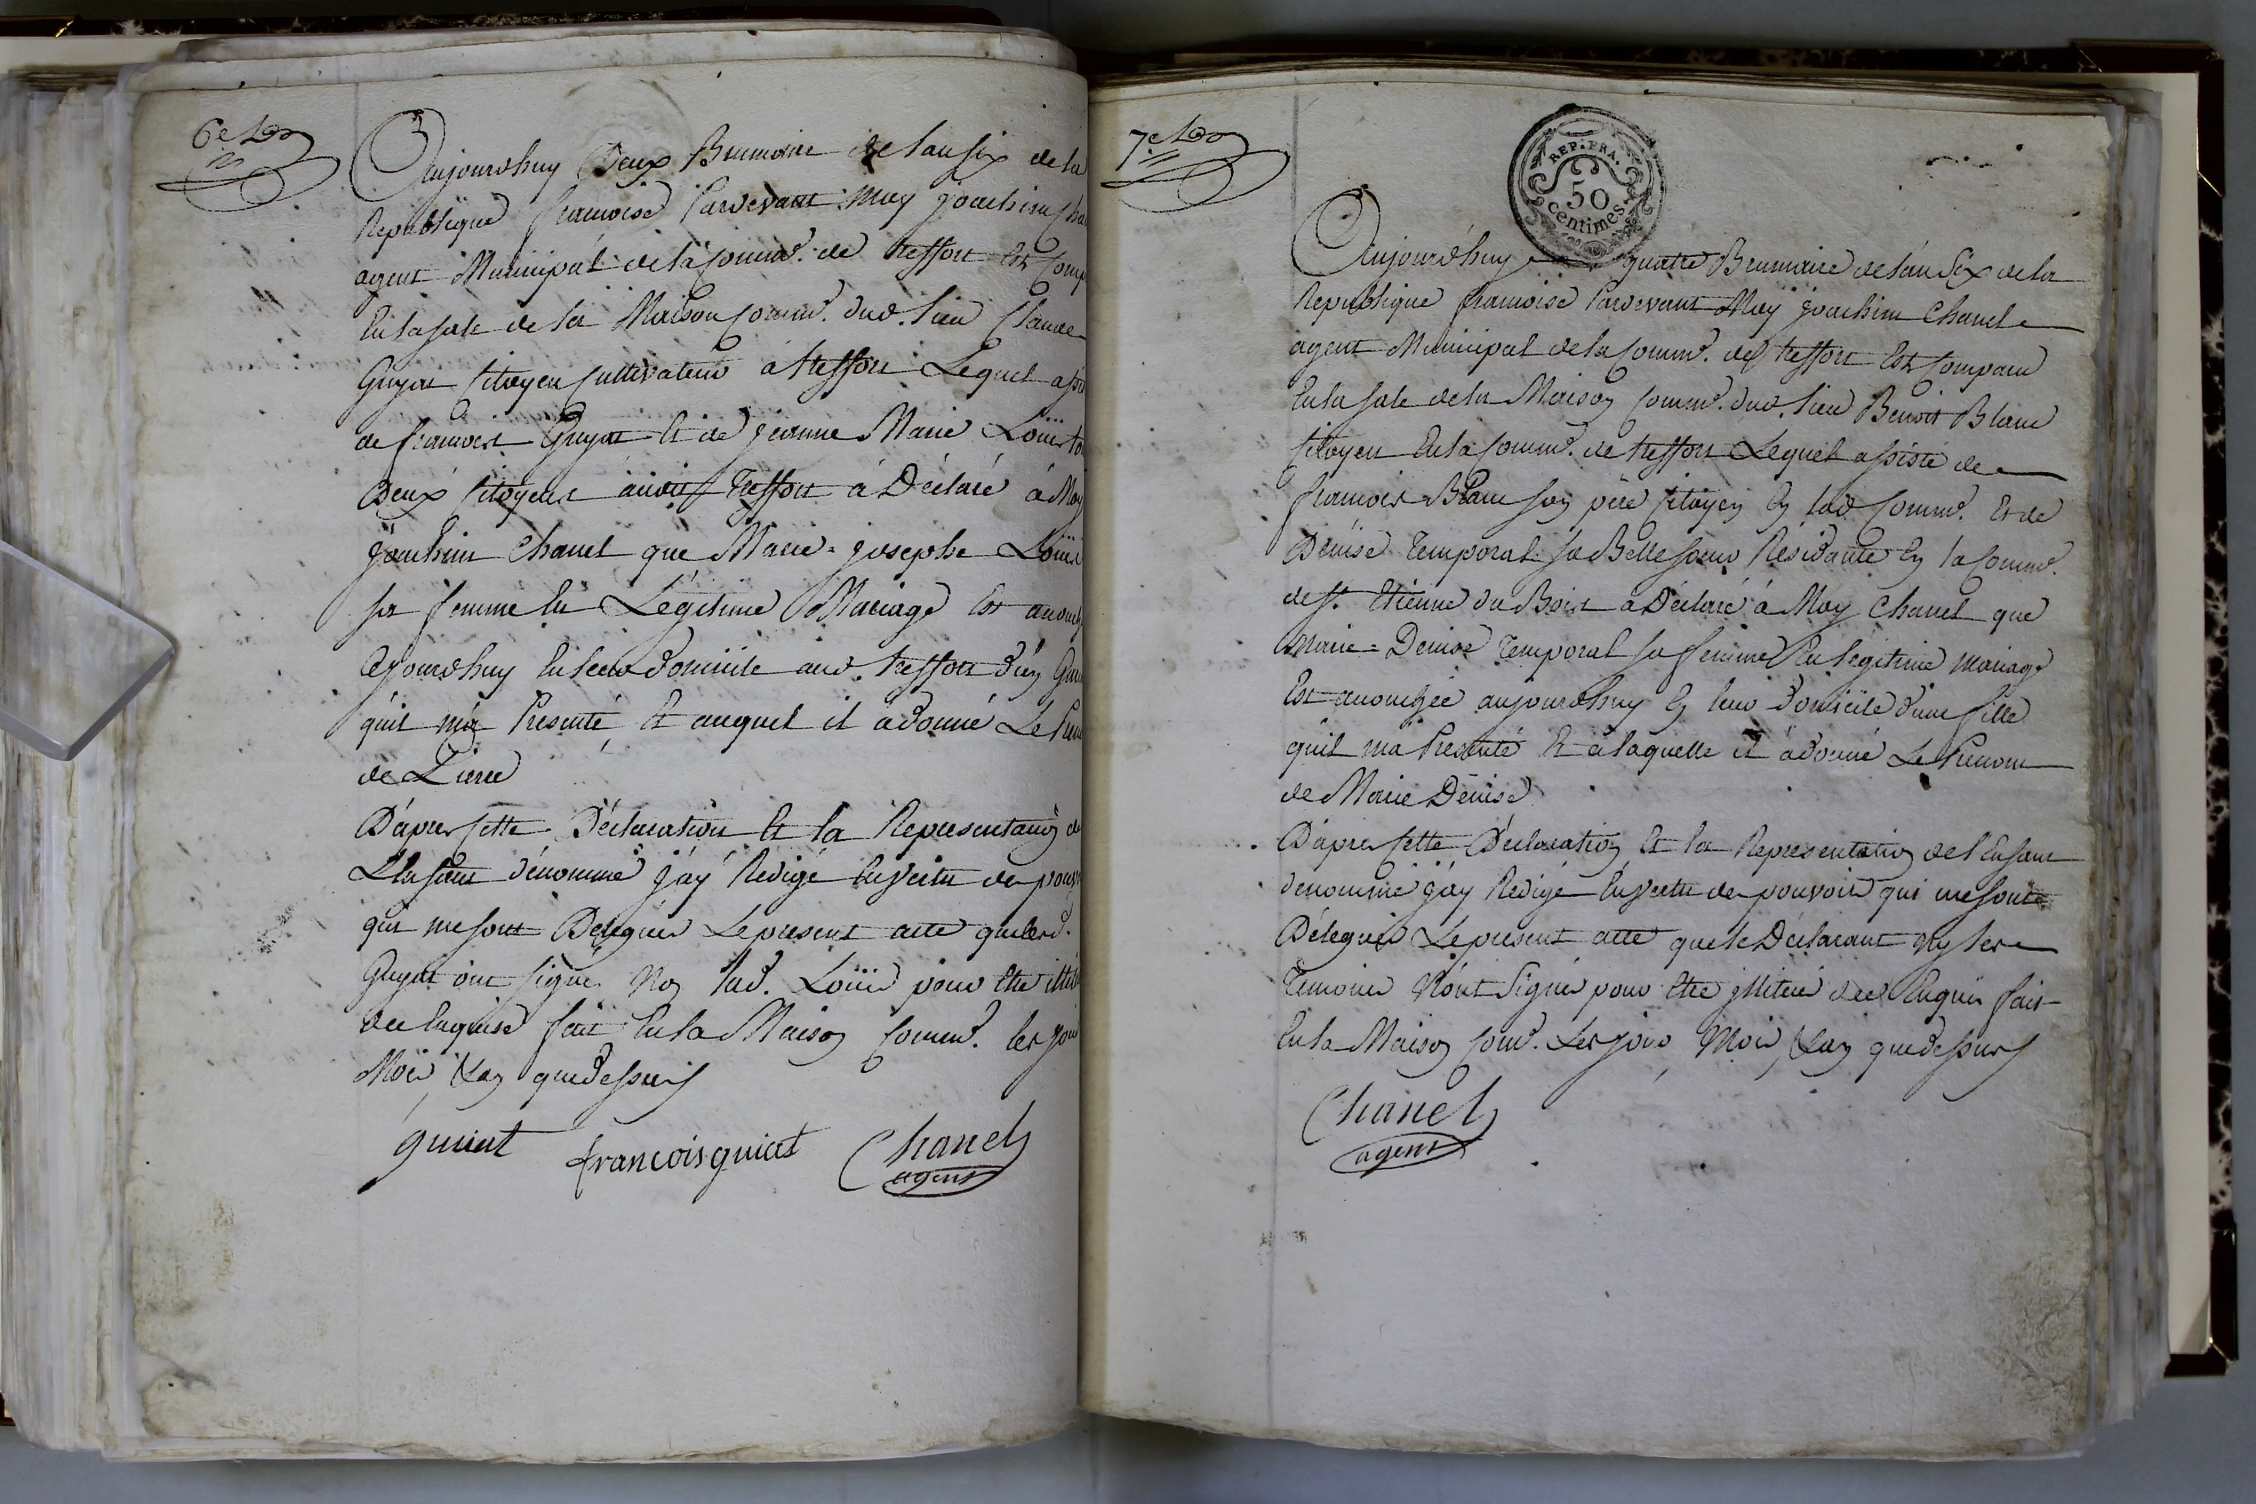 6e
Aujourdhuy Deux Brumaire de lan six de la
Republique francoise Pardevant Moy joachim Cha
agent Municipal de la Comm.e de treffort Est Comp
En la sale de la Maison Comm.e dud. lieu Claude
Guyat Citoyen Cultivateur á treffort Lequel assi
de francois Guyat Et de jeanne Marie Loüis to
Deux Citoyens audit Treffort á Déclaré á Moy
joachim Chanel que Marie-josephe Loüis
sa femme En Légitime Mariage Est acouch
Cejourdhuy En leur domicile aud. treffort d'un Gar
quil m'a Presenté, Et auquel il á donné Le Pren
de Pierre
D'apres Cette Déclaration Et la Representation de
L'Enfant dénommé j'áÿ Redigé En Vertu des pouv
qui me sont Délegués Le present acte que lesd.
Guyat ont signé Non lad. Loüis pour Etre illité
dee Enquise fait En la Maison Comm.e les jour
Mois, & an que dessus
guiat francois guiat Chanel
agent
7e
REP. FRA.
50
centimes
Aujourd'huy quatre Brumaire de l'an Six de la
Republique francoise Pardevant Moy joachim Chanel
agent Municipal de la Comm.e de treffort Est Comparu
En la sale de la Maison Comm.e dud. lieu Benoit Blanc
Citoyen En la Comm.e de treffort Lequel assisté de
francois Blanc son pere Citoyen En lad Comm.e Et de
Dénise Temporal sa Belle soeur Résidante En la Comm.e
de St. Etienne du Bois a Déclaré á Moy Chanel que
Marie-Denise Temporal sa femme En légitime Mariage
Est acouchée aujourdhuy En leur Domicile d'une fille
quil ma Presenté Et á laquelle il á donné Le Prenom
de Marie Dénise
D'apres Cette Déclaration Et la Representation de l'Enfant
denommé j'áy Redigé En Vertu des pouvoirs qui me sont
Délegués Le present acte que le Déclarant Ny les
Temoins N'ont Signés pour Etre jlliteré dee Enquis fait
En la Maison Com.e Les jour, Mois, & an que dessus
Chanel
agent